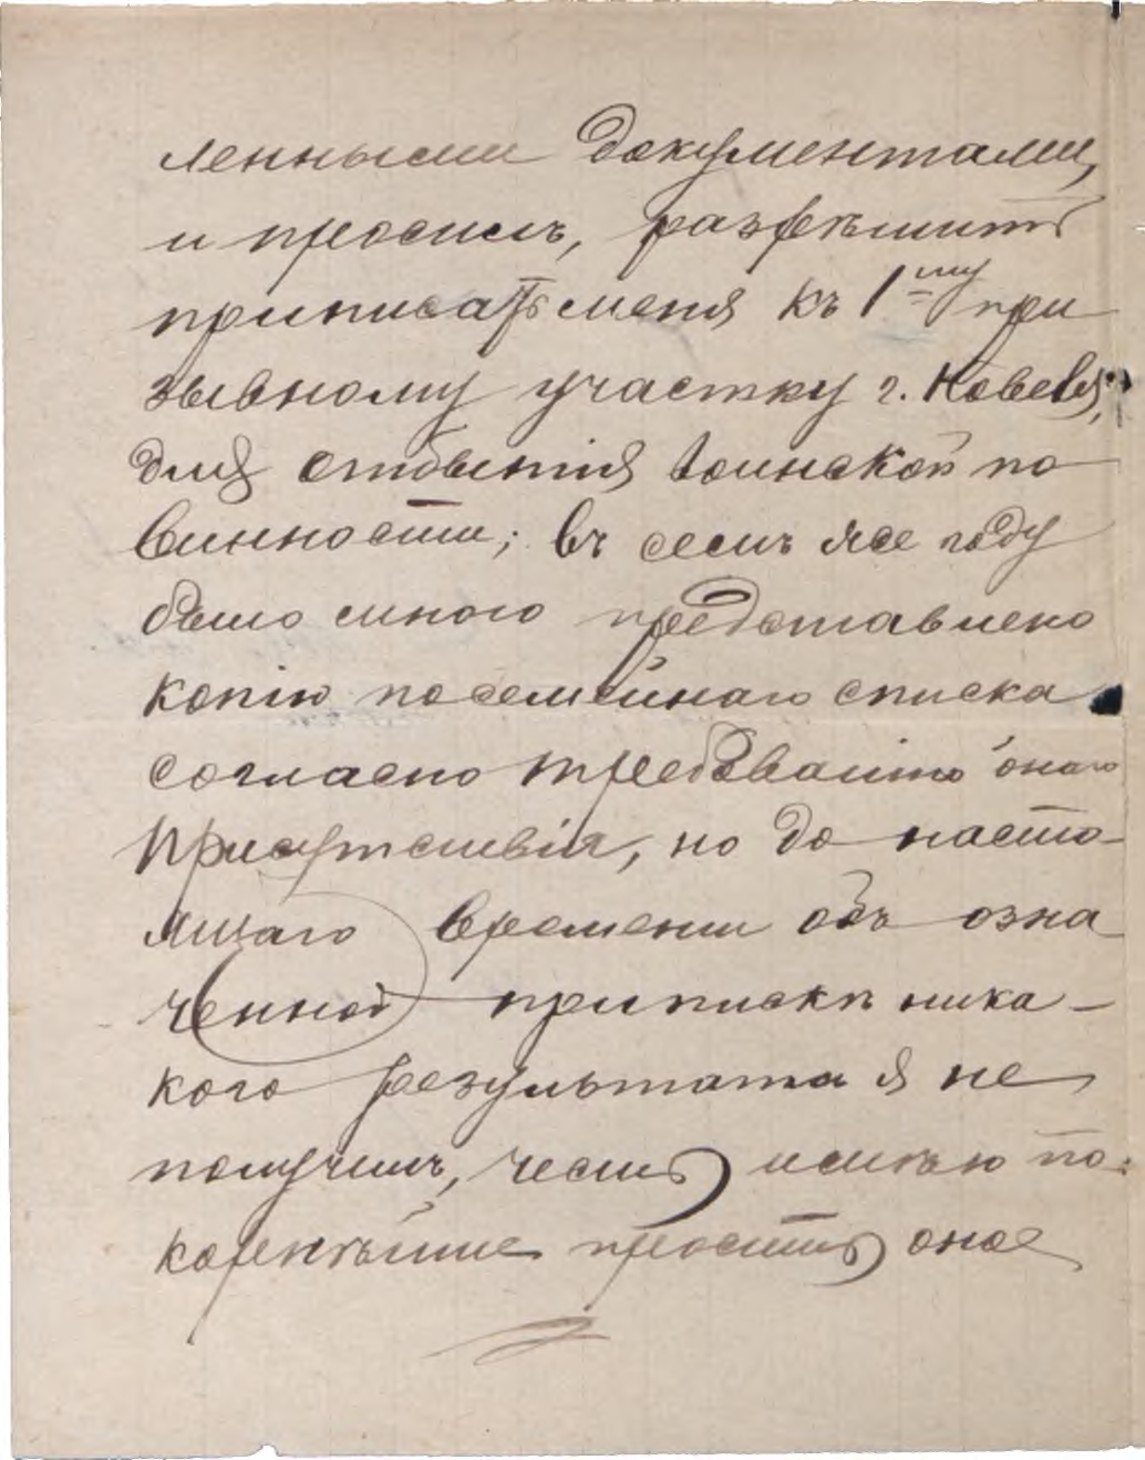 ленными документами,
и просилъ, разрѣшить
приписать меня къ 1му при
зывному участку г. Ковеля,
для отбытія воинской по
винности; въ семъ же году
было мною представлено
копію посемейнаго списка
согласно требованію онаго
Присутствія, но до насто-
ящаго времени объ озна
ченной припискѣ ника-
кого результата я не
получилъ, честь имѣю по-
корнѣйше просить оное